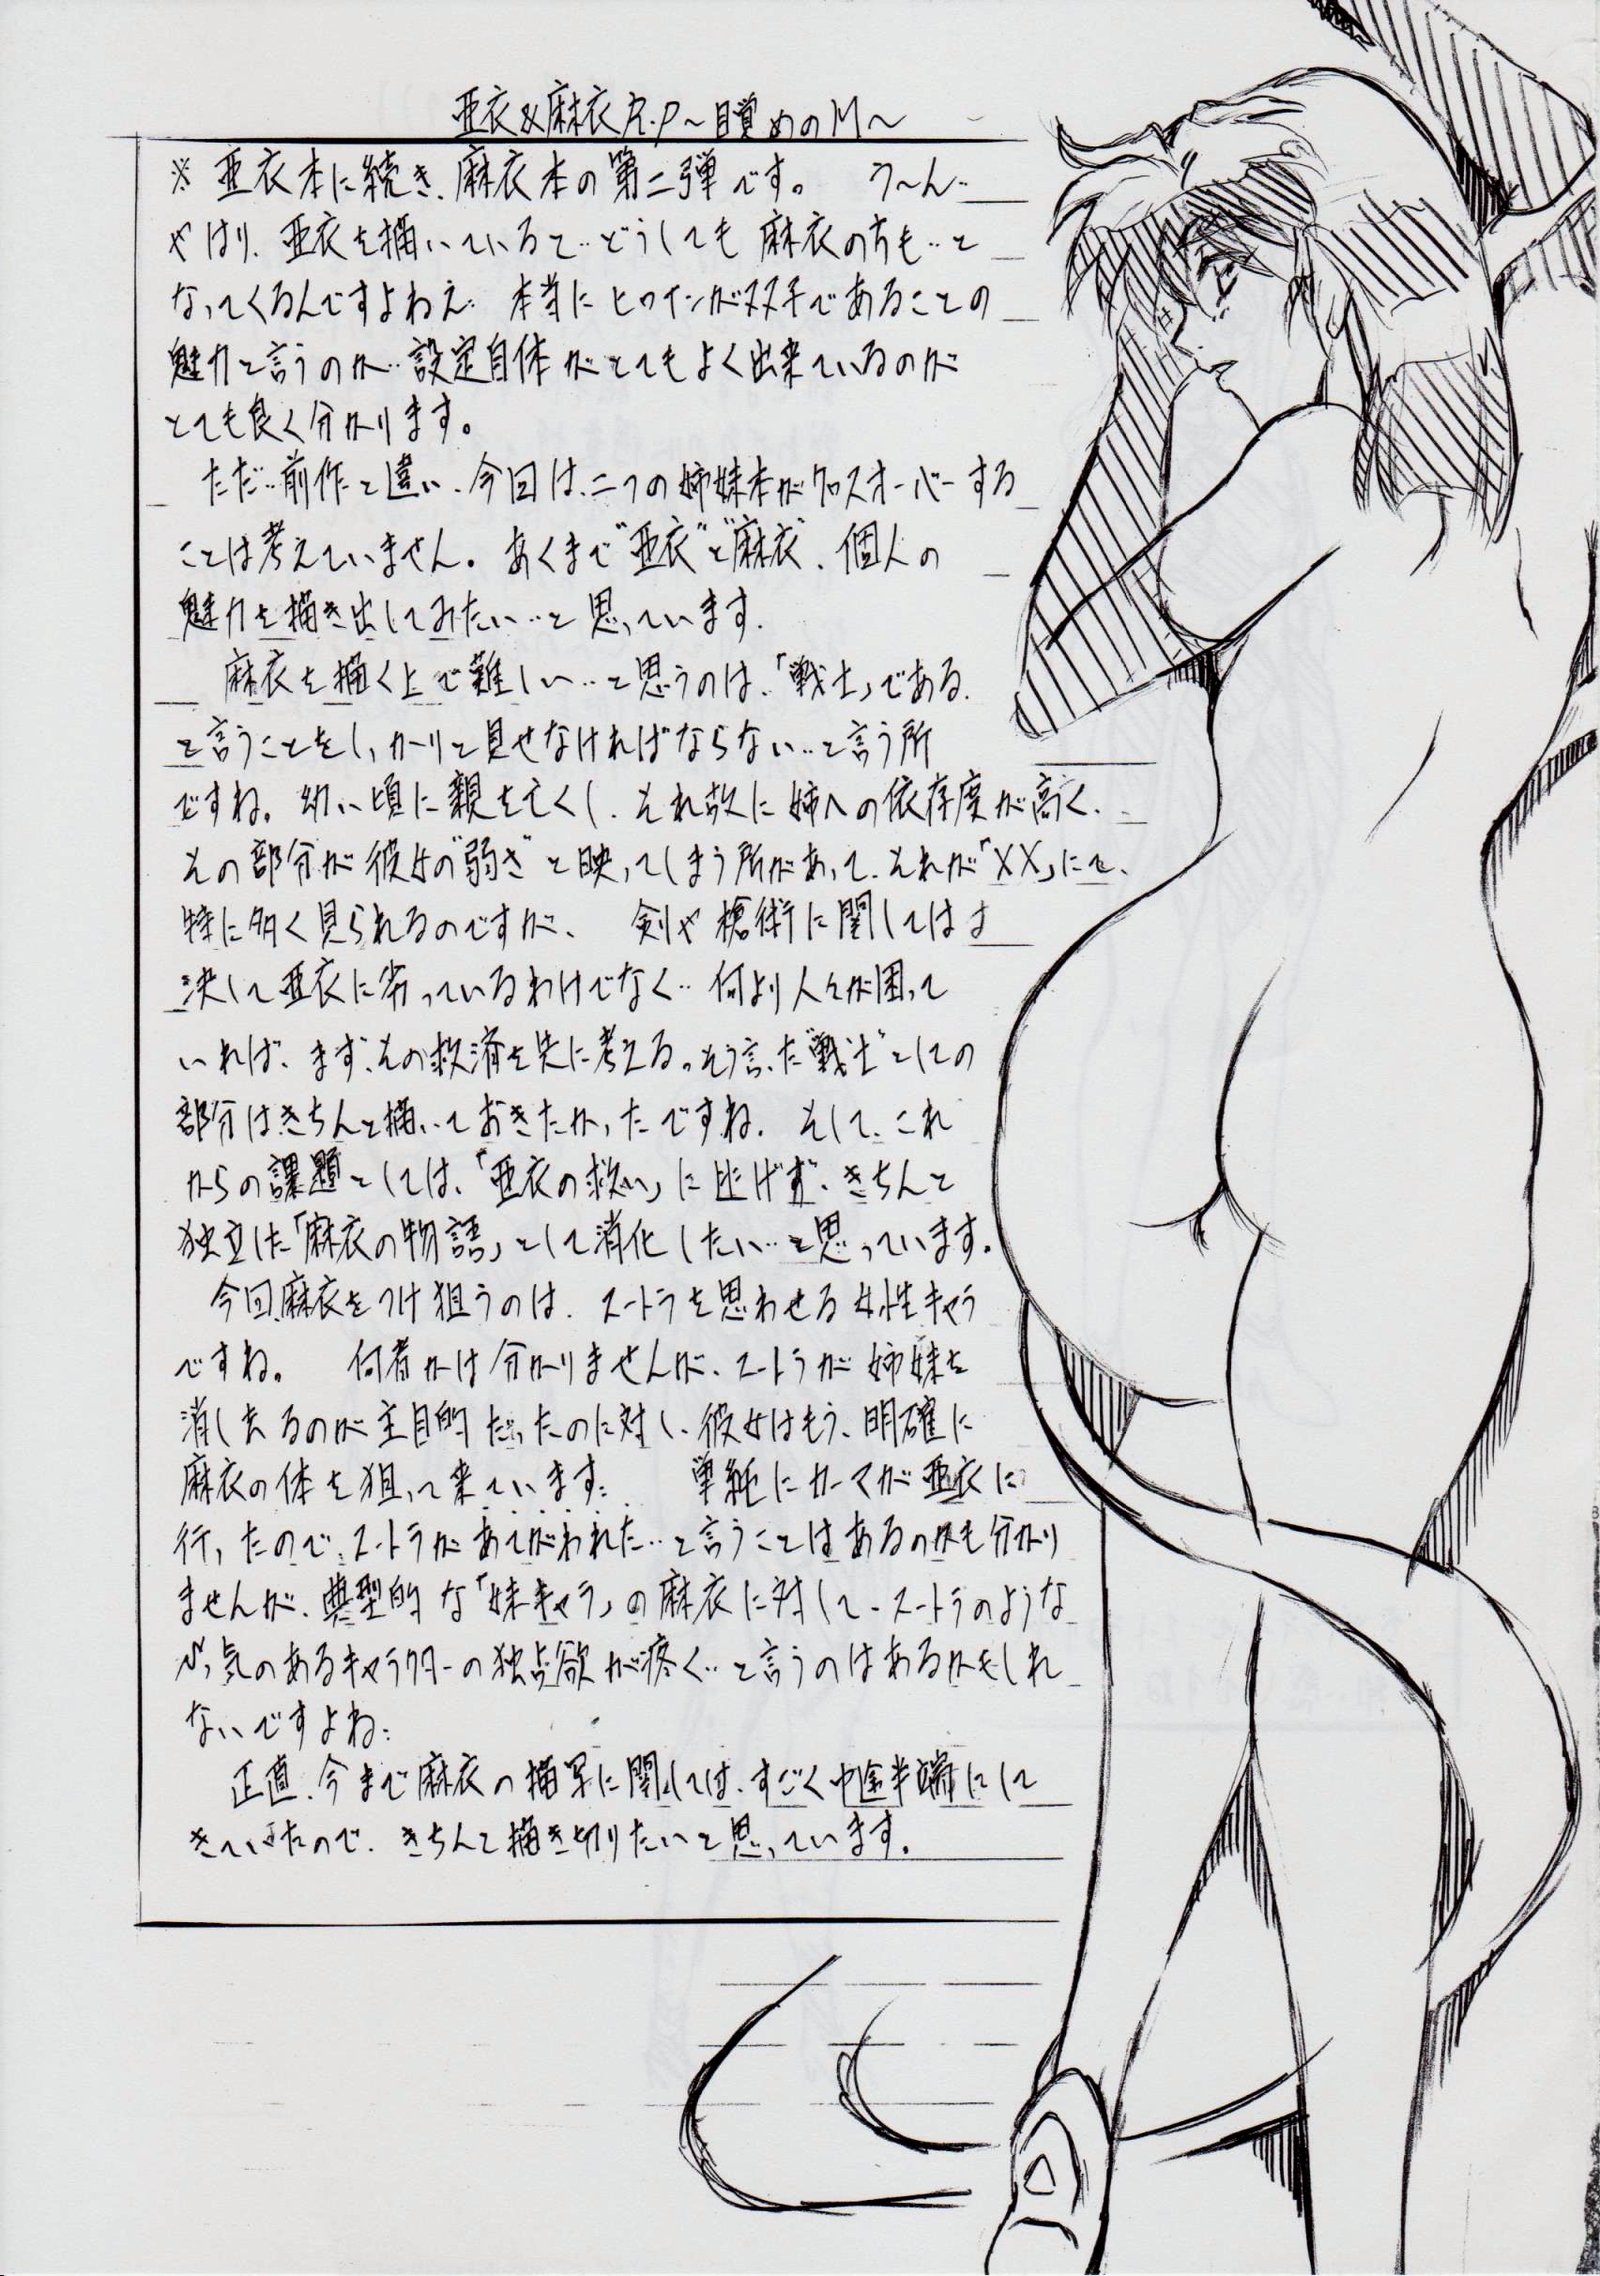 亜衣&麻衣R.P～目覚めのM～
※ 亜衣本に続き、麻衣本の第二弾です。 う～ん‥
やはり、亜衣を描いていると‥どうしても 麻衣の方も‥と
なってくるんですよねえ‥ 本当に ヒロインが双子であることの
魅力と言うのか‥設定自体がとてもよく出来ているのが
とても良く分かります。
ただ‥前作と違い、今回は、二つの姉妹本がクロスオーバーする
ことは考えていません。あくまで"亜衣"と"麻衣"、個人の
魅力を描き出してみたい‥と思っています。
麻衣を描く上で難しい‥と思うのは、「戦士」である、
と言うことをしっかりと見せなければならない‥と言う所
ですね。幼い頃に親を亡くし、それ故に姉への依存度が高く、
その部分が彼女の"弱さ"と映ってしまう所があって、それが「XX」にて、
特に多く見られるのですが、 剣や槍術に関しては
決して亜衣に劣っているわけでなく‥何より人々が困って
いれば、まず、その救済を先に考える。そう言った"戦士"としての
部分はきちんと描いておきたかったですね。そして、これ
からの課題としては、「亜衣の救い」に逃げず、きちんと
独立した「麻衣の物語」として消化したい‥と思っています。
今回、麻衣をつけ狙うのは、スートラを思わせる女性キャラ
ですね。 何者かは分かりませんが、スートラが姉妹を
消し去るのが主目的だったのに対し、彼女はもう、明確に
麻衣の体を狙って来ています‥ 単純にカーマが亜衣に
行ったので、スートラがあてがわれた‥と言うことはあるのかも分かり
ませんが、典型的な「妹キャラ」の麻衣に対して、スートラのような
っ気のあるキャラクターの独占欲が疼く‥と言うのはあるかもしれ
ないですよね‥
正直、今まで麻衣の描写に関しては、すごく中途半端にして
きていたので、きちんと描き切りたいと思っています。